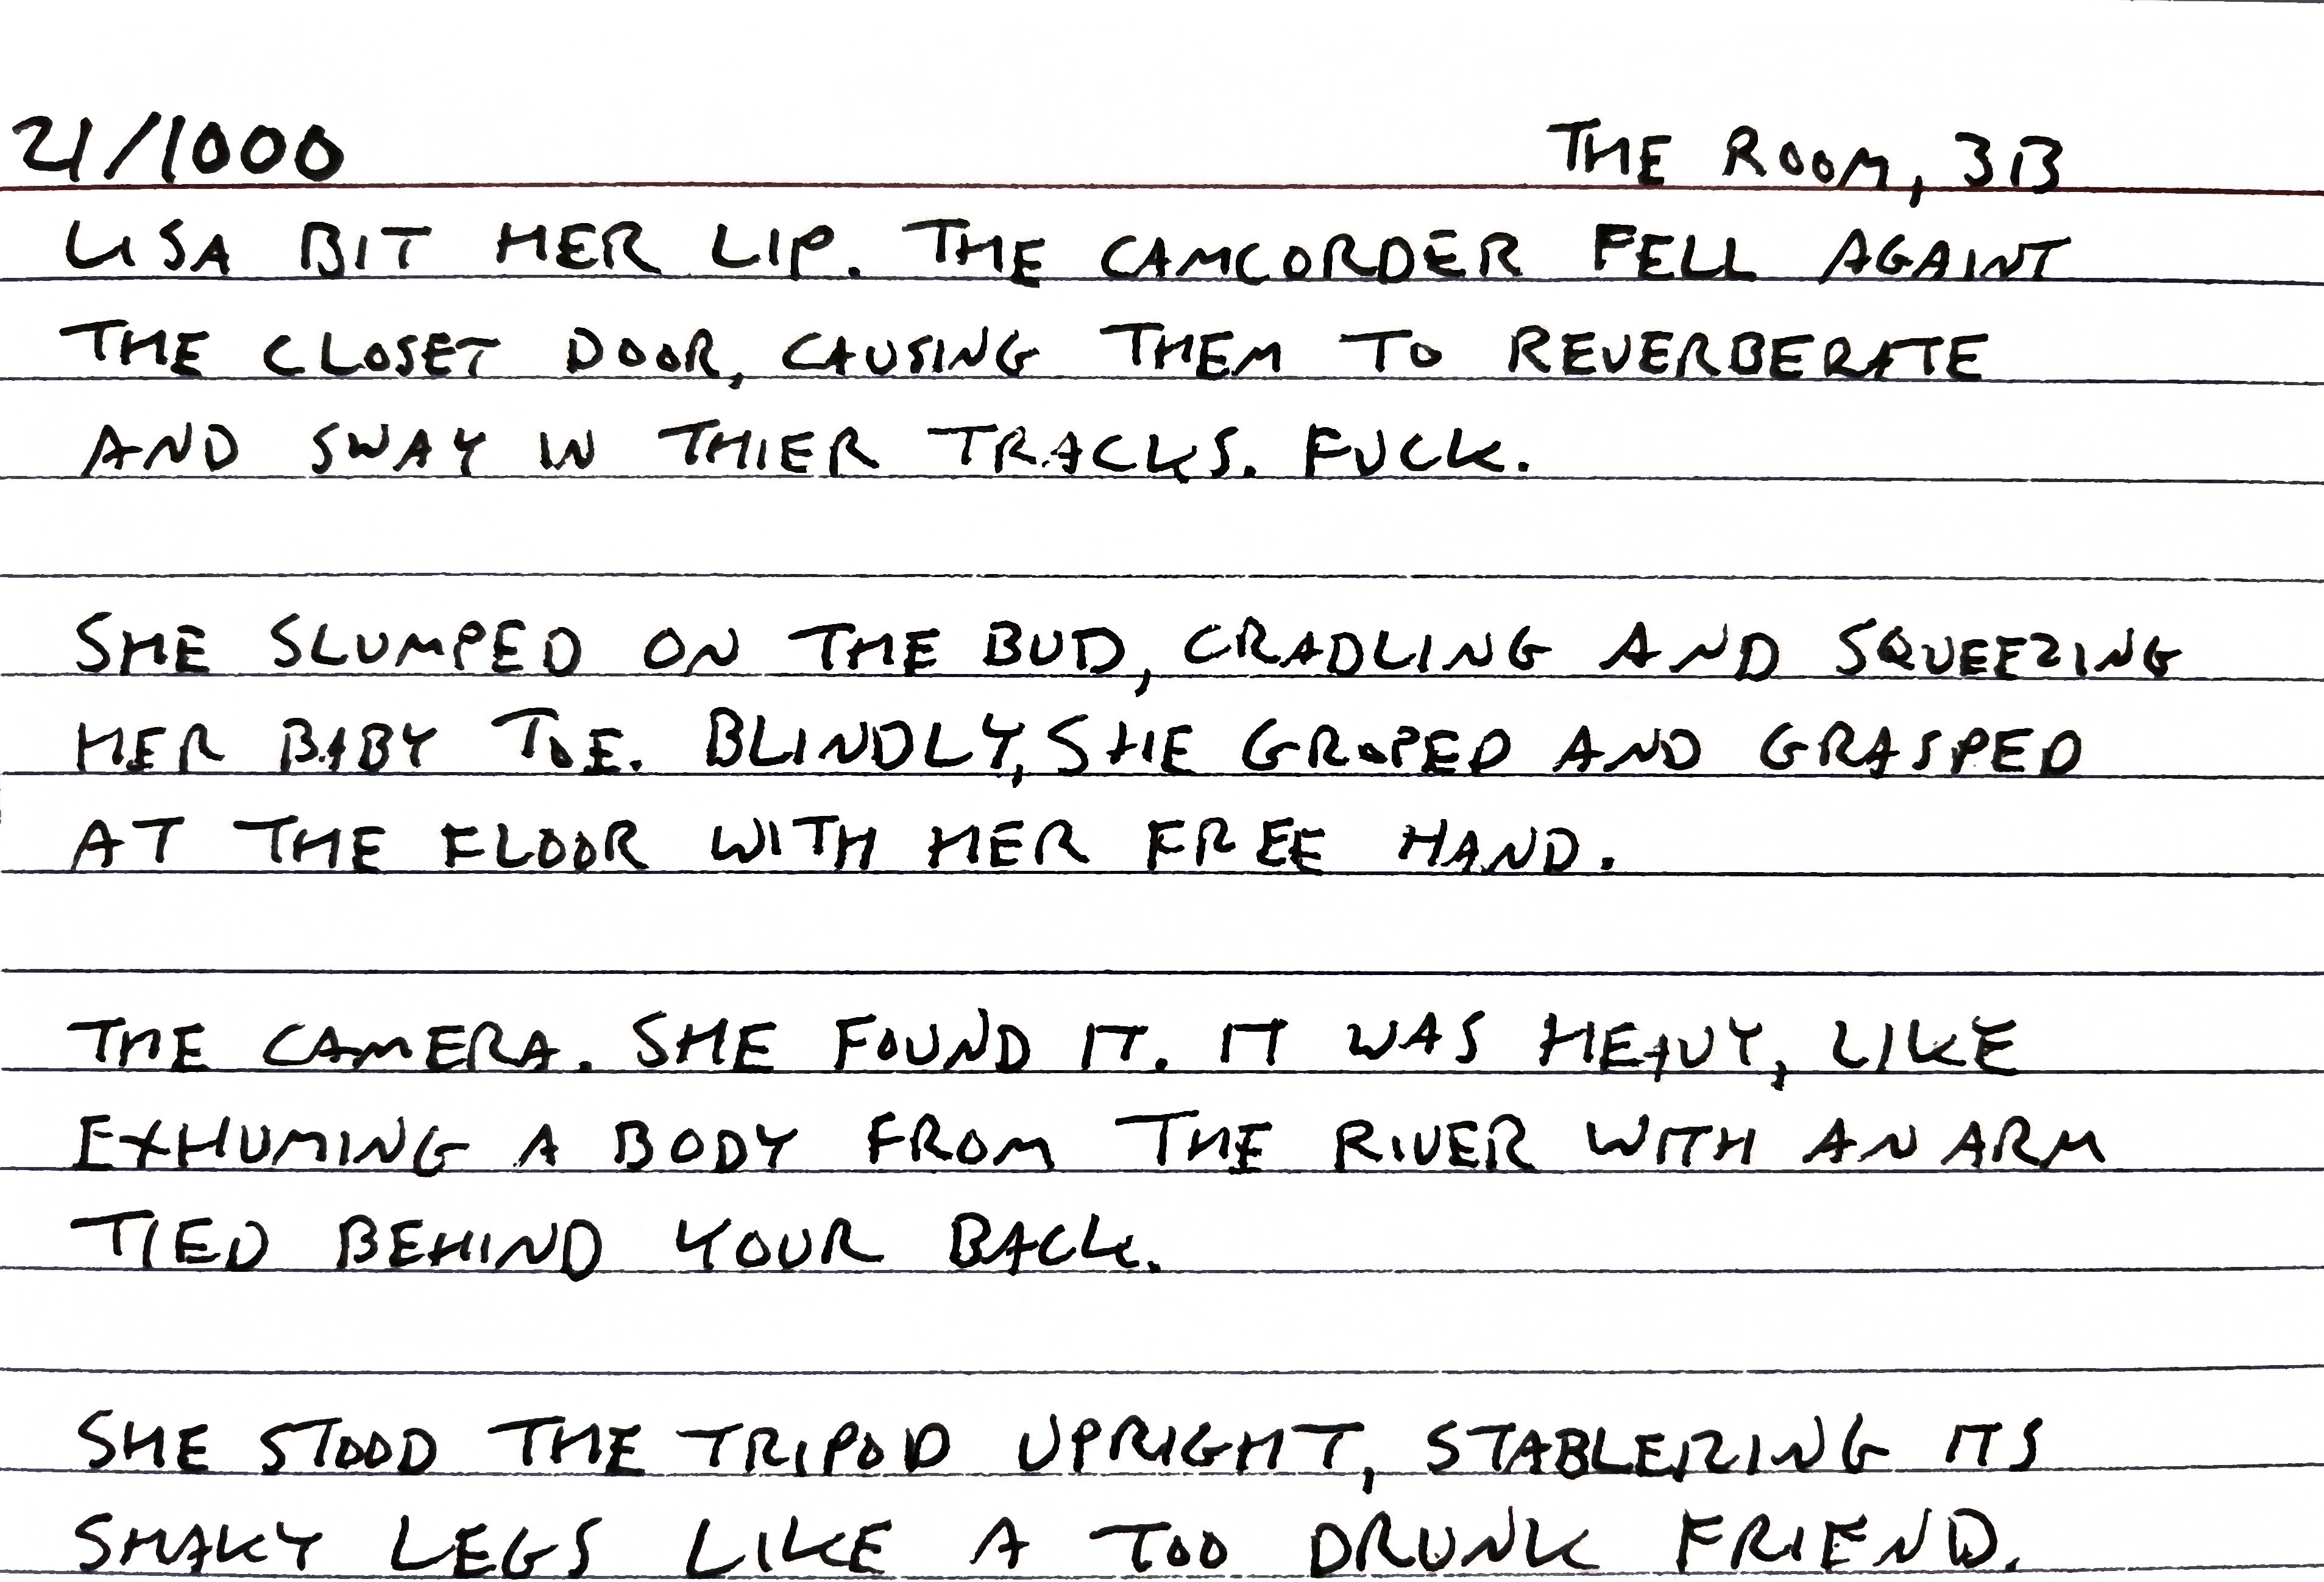 21/1000 THE ROOM, 3B
LISA BIT HER LIP. THE CAMCORDER FELL AGAINT
THE CLOSET DOOR, CAUSING THEM TO REVERBERATE
AND SWAY IN THIER TRACKS. FUCK.
SHE SLUMPED ON THE BUD, CRADLING AND SQUEEZING
HER BABY TOE. BLINDLY, SHE GROPED AND GRASPED
AT THE FLOOR WITH HER FREE HAND.
THE CAMERA. SHE FOUND IT. IT WAS HEAVY, LIKE
EXHUMING A BODY FROM THE RIVER WITH AN ARM
TIED BEHIND YOUR BACK.
SHE STOOD THE TRIPOD UPRIGHT, STABLEIZING ITS
SHAKY LEGS LIKE A TOO DRUNK FRIEND.